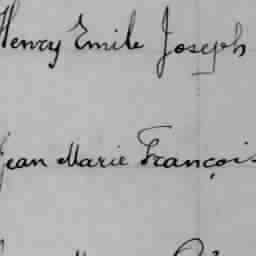 Henry Emile Joseph
Jean Marie François